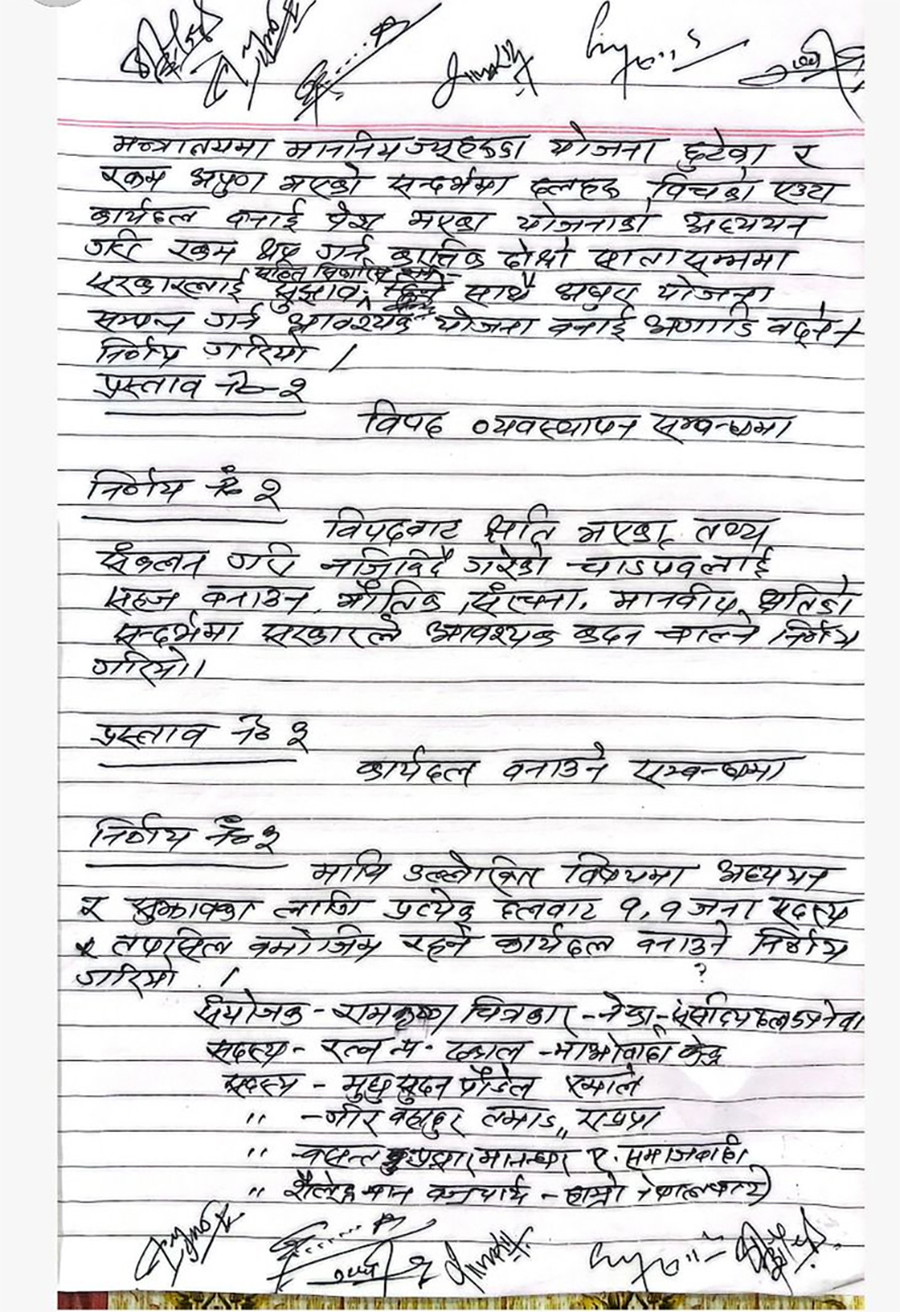 मन्त्रालयमा माननिय ज्यूहरुका योजना छुटेका र
रकम अपुग भएको सन्दर्भमा दलहरु विचको एउटा
कार्यदल बनाई पेश भएका योजनाको अध्ययन
गरि रकम थप गर्न कार्तिक दोश्रो साता सम्ममा
सहित
सरकारलाई सुझाव साथै अधुरा योजना
सम्पन्न गर्न आवश्यक योजना बनाई अगाडि बढ्ने
निर्णय गरियो ।
प्रस्ताव नं २
विपद व्यवस्थापन सम्बन्धमा
निर्णय नं २
विपदबाट क्षति भएका तथ्य
संकलन गरि नजिकिदै गरेको चाडपर्वलाई
सहज बनाउन, भौतिक संरचना, मानवीय क्षतिको
सन्दर्भमा सरकारले आवश्यक कदम चाल्ने निर्णय
गरियो।
प्रस्ताव नं ३
कार्यदल बनाउने सम्बन्धमा
निर्णय नं ३
माथि उल्लेखित विषयमा अध्ययन
र सुझावका लागि प्रत्येक दलबाट १,१ जना सदस्य
र तपसिल बमोजिम रहने कार्यदल बनाउने निर्णय
गरियो । ?
संयोजक - रामकृष्ण चित्रकार - नेका - संसदिय दल उपनेता
सदस्य - रत्न प्र. ढकाल - माओवादी केन्द्र
सदस्य - मधुसुदन पौडेल एमाले
" - वीर बहादुर तामाङ राप्रपा
" - बसन्त मानन्धर ए. समाजवादी
" शैलेन्द्र मान बज्राचार्य - हाम्रो नेपाल पार्टी